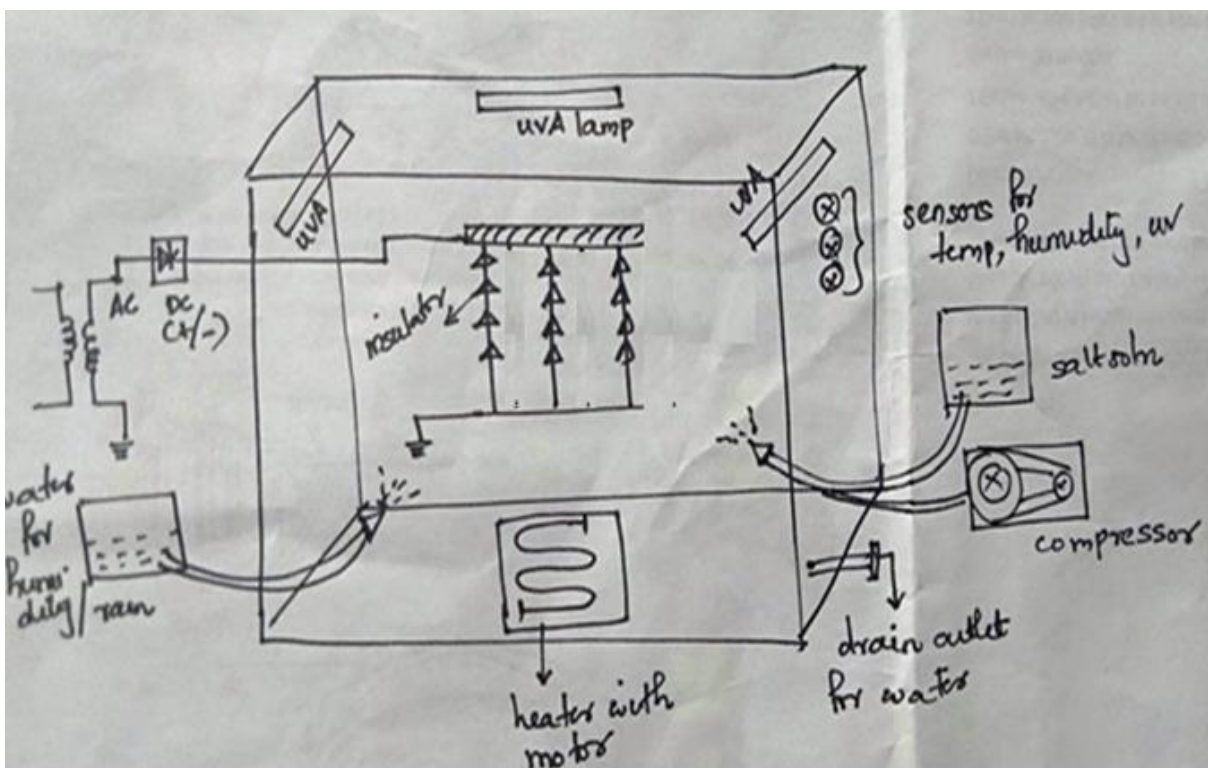 uvA lamp
uvA
uvA
sensors for
temp, humidity, uv
AC
DC
(+/-)
insulator
saltsoln
water
for
humi
dity/rain
compressor
drain outlet
for water
heater with
motor